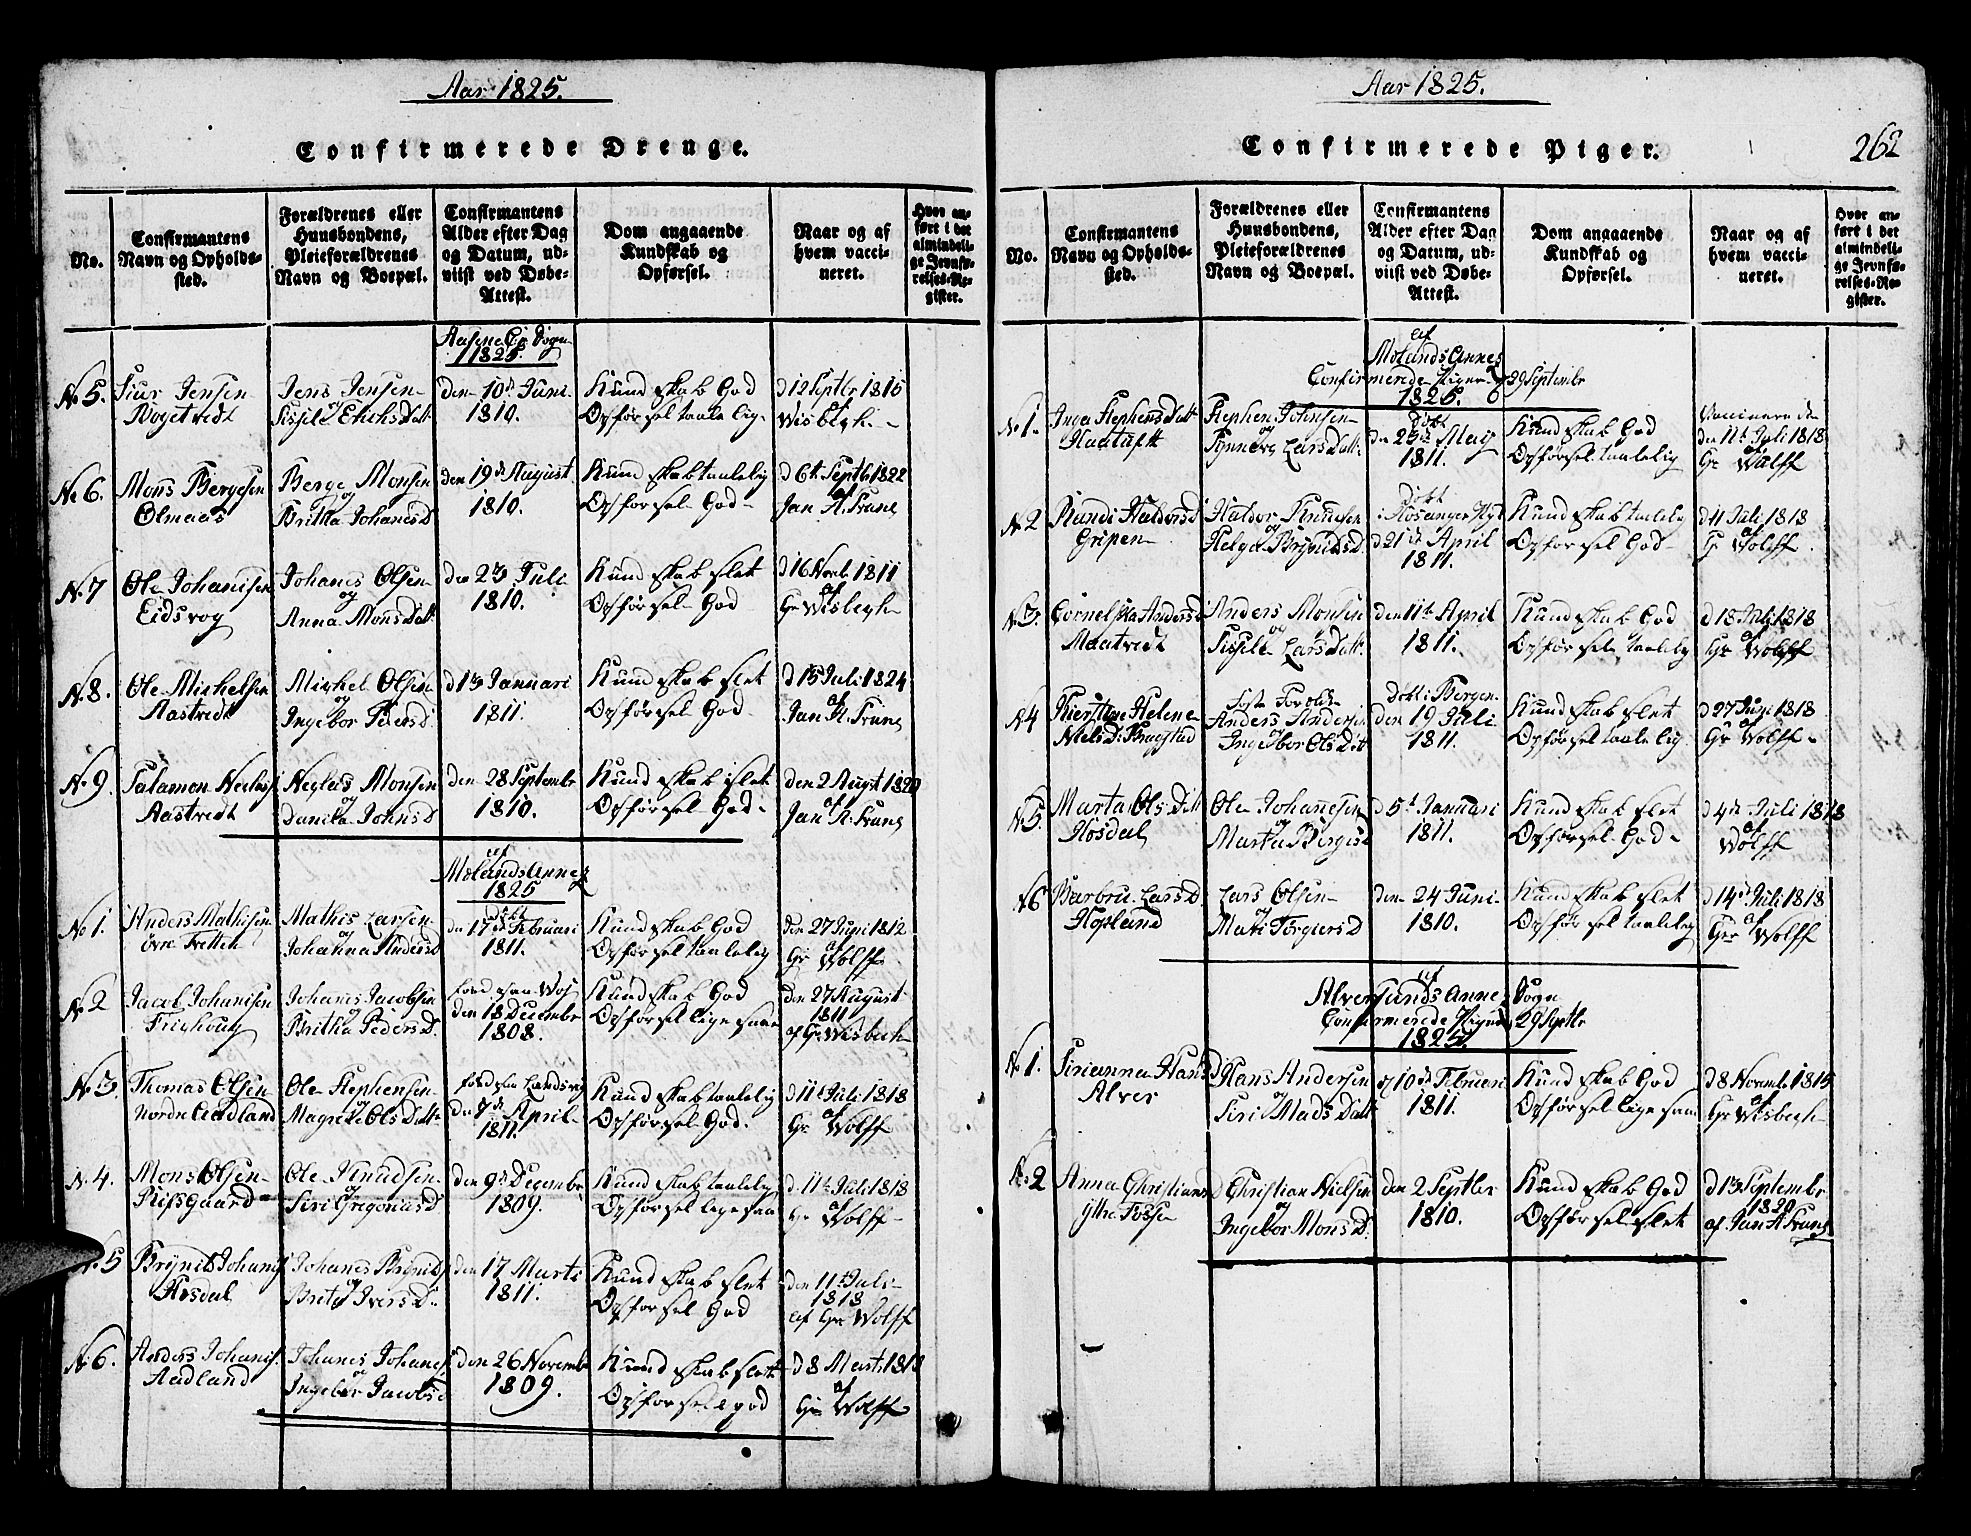 Aar 1825.
Confirmerede Drenge.
No.
Confirmantens
Navn og Opholds-
sted.
Forældrenes eller
Huusbondens,
Pleieforældrenes
Navn og Boepæl.
Confirmantens
Alder efter Dag
og Datum, ud-
viist ved Døbe-
Attest.
Dom angaaende
Kundskab og
Opførsel.
Naar og af
hvem vacci-
neret.
Hvor an-
ført i det
almindeli-
ge Jevnfø-
relses-Re-
gister.
1825.
No 5. Siur Jensen
Jens Jensen
og
Sissile Eriks Datt
den 10de Juni
1810.
Kundskab God
Opførsel taalelig
d 12 Septbr 1815
af
Wisbech
No 6. Mons Bergesen
Ølmaas
Berge Monsen
og
Britha Johanes D
den 19de August
1810.
Kundskab taalelig
Opførsel God
d 6te Septbr 1822
af
Jan H. Frans
No 7 Ole Johanisen
Eidsvog
Johanes Olsen
og
Anna Mons Datt
den 23 Juli
1810.
Kundskab slet
Opførsel God
d 16 Novb 1811
af
Gr Wisbech
No 8. Ole Michelsen
Aastvedt
Michel Olsen
og
Ingebor Peders d
d 13 Januari
1811.
Kundskab slet
Opførsel God
d 15 Juli 1824
af
Jan H. Frans
No 9. Salamon
Aastvedt
Monsen
og
Johns d
den 28 Septembr
1810.
Kundskab slet
Opførsel God
den 2 Augst
af
Jan H. Frans
af
Molands Annex
1825
No 1. Anders Mathisen
øvre Fretten
Mathis Larsen
og
Johanna Anders d
døbt
den 17de Februari
1811.
Kundskab God
Opførsel taalelig
den 27 Juni 1812
af
Gr Wolff
No 2 Jacob Johanisen
Johanes Jacobsen
og
Britha Peders d.
den 18 Decembr
1808.
Kundskab God
Opførsel lige saa
den 27 August
1811
af Gr Wisbech
No 3. Thomas Olsen
Nordre Aadland
Ole Stephensen
og
Magrete Ols Datt
den 7de April
1811.
Kundskab taalelig
Opførsel God.
d 11te Juli 1818
af
Gr Wolff
N. 4. Mons Olsen
Risgaard
Ole Knudsen
og
Siri Gregorius d
den 9de Decembr
1809.
Kundskab taalelig
Opførsel lige saa
d 11te Juli 1818
af
Gr Wolff
No 5 Brynild Johanes
Hosdal
Johanes Brynilds
og
Brita Ivers D.
den 17 Marts
1811.
Kundskab slet
Opførsel God
den 11te Juli
1818
af Gr Wolff
No 6. Anders Johanis.
Aadland
Johanes Johanes
og
Ingebor Jacobs d
den 26 Novembr
1809.
Kundskab slet
Opførsel god
d 8 Marts 1818
af
Gr Wolff
Aar 1825.
Confirmerede Piger.
262
No.
Confirmantens
Navn og Opholds-
sted.
Forældrenes eller
Huusbondens,
Pleieforældrenes
Navn og Boepæl.
Confirmantens
Alder efter Dag
og Datum, ud-
viist ved Døbe-
Attest.
Dom angaaende
Kundskab og
Opførsel.
Naar og af
hvem vacci-
neret.
Hvor an-
ført i det
almindeli-
ge Jevnfø-
relses-Re-
gister.
af
Molands Annex
Confirmerede Piger d 29 Septembr
1825.
No 1. Inga Stephens Datt
Stephen Johnsen
og
Synneva Lars Datt
døbt
den 25de Maij
1811.
Kundskab God
Opførsel taalelig
Vaccinerede
den 11te Juli 1818
af
Gr Wolff
No 2 Randi Haldors d
Gripen
Haldor Knudsen
og
Helga Brynilds d.
døbt
d 21de April
1811.
Kundskab taalelig
Opførsel God
d 11 Juli 1818
af
Gr Wolff.
No 3. Cornelska Anders d
Maatvedt
Anders Monsen
og
Sissele Lars Datt.
den 11te April
1811.
Kundskab God
Opførsel taalelig
d 18 Juli 1818
af
Gr Wolff
N 4 Kierstine Helene
Niels D.
Foster Foreldre
Anders Andersen
og
Ingebor Ols Datt
døbt i Bergen
den 19 Juli
1811.
Kundskab slet
Opførsel taalelig
d 27 Juni 1818
af
Gr Wolff
No 5. Marta Ols Datt
Hosdal
Ole Johannesen
og
Marta Birges d
d 5te Januari
1811.
Kundskab slet
Opførsel God
d 4de Juli 1818
af
Wolff
No 6 Barbru Lars D
Hopland
Lars Olsen
og
Mari Torgiers D
den 24 Juni
1810.
Kundskab slet
Opførsel taalelig
d 14de Juli 1818
af
Gr Wolff
af
Alversunds Annex Sogn
Confirmerede Piger d 29 Septbr
1825.
No 1. Sirianna Hans D
Alver
Hans Andersen
og
Siri Mads Datt
d 10de Februari
1811.
Kundskab God
Opførsel lige saa
d 8 Novembr 1815
af
Gr Wisbech
No 2 Anna Christians D
ytre Fosse
Christian Nielsen
og
Ingebor Mons D.
den 2 Septbr
1810.
Kundskab God
Opførsel slet
d 13 Septembr
1820
af Jan H. Frans